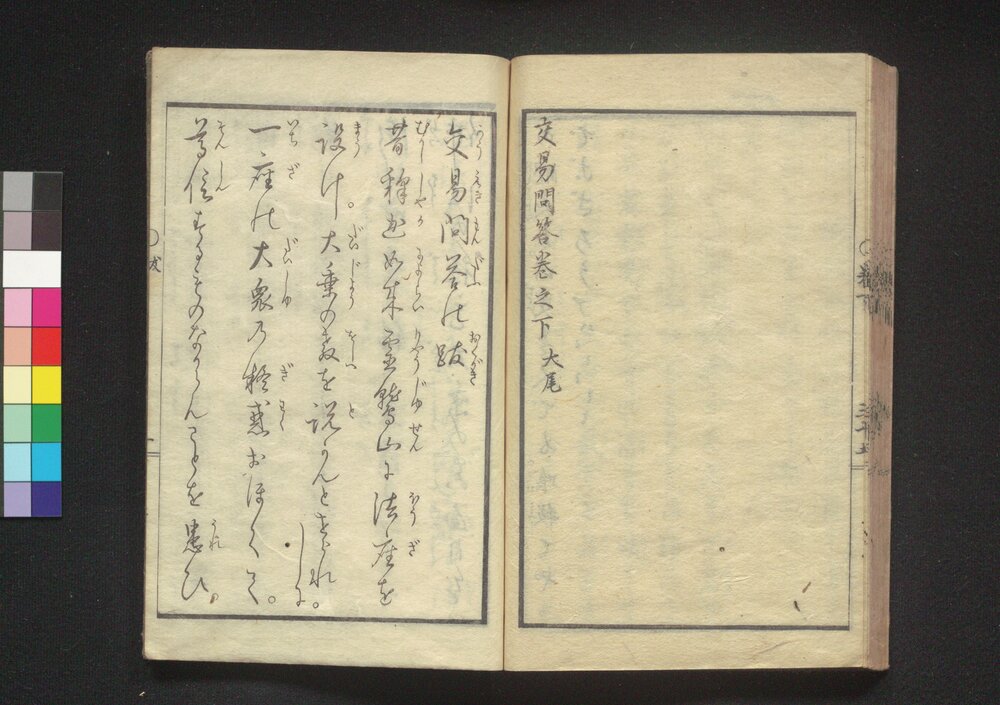 交易問答巻之下 大尾
交易問答の跋
昔釋迦如来霊鷲山に法座を
設け。大乗の教を説かんとされ。しに
一座の大衆乃疑惑おほくて。
尊信するものなからんことを患ひ。